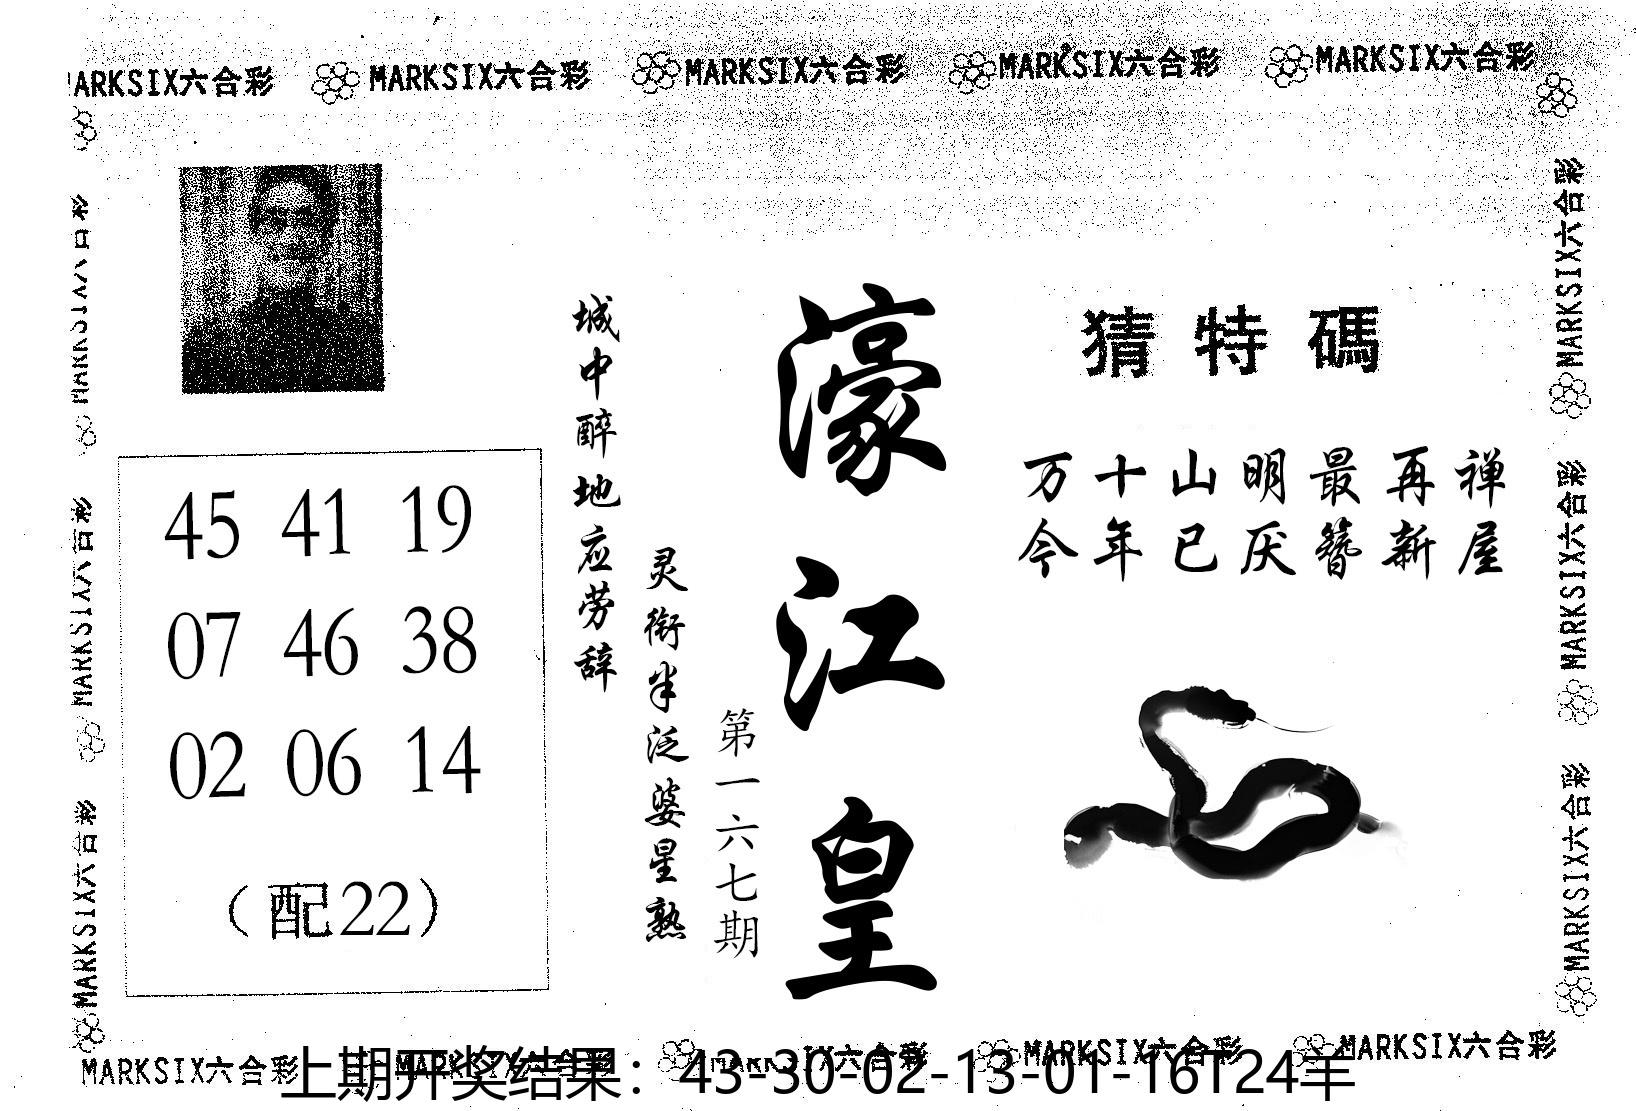 MARKSIX六合彩 MARKSIX六合彩 MARKSIX六合彩 MARKSIX六合彩 MARKSIX六合彩
猜特碼
万十山明最再禅
今年已厌簪新屋
濠江皇
第一六七期
城中醉地应劳辞
灵衔半泛婆星熟
45 41 19
07 46 38
02 06 14
（配22）
MARKSIX六合彩
MARKSIX六合彩
MARKSIX六合彩
MARKSIX六合彩
MARKSIX六合彩
MARKSIX六合彩
MARKSIX六合彩 MARKSIX六合彩 MARKSIX六合彩 MARKSIX六合彩 MARKSIX六合彩
上期开奖结果：43-30-02-13-01-16T24羊